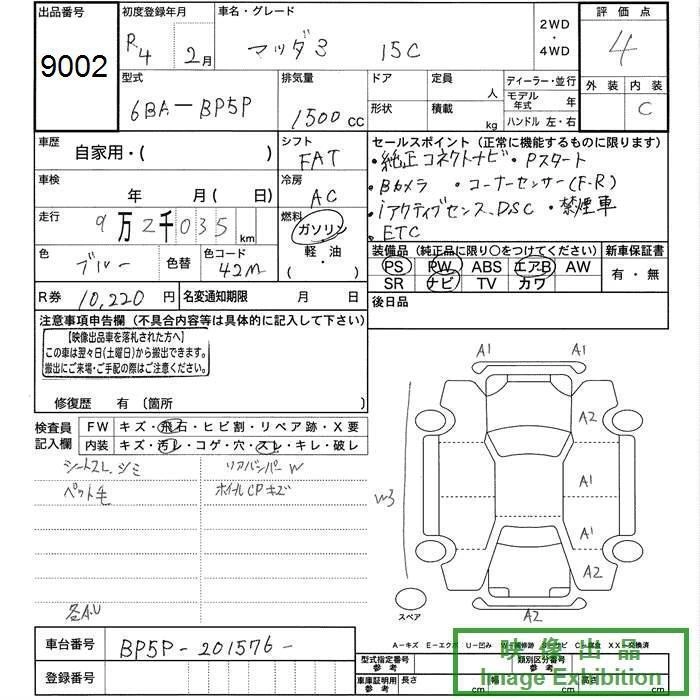 出品番号
9002
初度登録年月
R4 2月
車名・グレード
マツダ3 15C
2WD
・
4WD
評価点
4
外装 内装
C
型式
6BA-BP5P
排気量
1500cc
ドア
形状
定員 人
積載 kg
ディーラー・並行
モデル年式 年
ハンドル 左・右
車歴
自家用・( )
シフト
FAT
セールスポイント(正常に機能するものに限ります)
・純正コネクトナビ ・Pスタート
・Bカメラ ・コーナーセンサー(F-R)
・iアクティブセンス、DSC ・禁煙車
・ETC
車検
年 月( 日)
冷房
AC
走行
9万2千035km
燃料
ガソリン
軽・油
・( )
色
ブルー
色替
色コード
42M
装備品(純正品に限り○をつけてください)
PS PW ABS エアB AW
SR ナビ TV カワ
新車保証書
有・無
R券 10,220円
名変通知期限 月 日
後日品
注意事項申告欄(不具合内容等は具体的に記入して下さい)
【映像出品車を落札された方へ】
この車は翌々日(土曜日)から搬出できます。
搬出にご来場・ご手配の際はご注意ください。
修復歴 有(箇所 )
検査員記入欄
FW キズ・飛石・ヒビ割・リペア跡・X要
内装 キズ・汚レ・コゲ・穴・スレ・キレ・破レ
シートスレ、シミ リアバンパーW
ペット毛 ホイールCPキズ
各A.U
A1 A1
A2
A1
W3
A1
A2
スペア
A2
車台番号
BP5P-201576-
登録番号
A-キズ E-エクボ U-凹み W-補修跡 S-サビ C-腐食 XX-交換済
型式指定番号
参考
類別区分番号
参考
車庫証明用
参考
長さ cm
幅 cm
高さ cm
映像出品
Image Exhibition